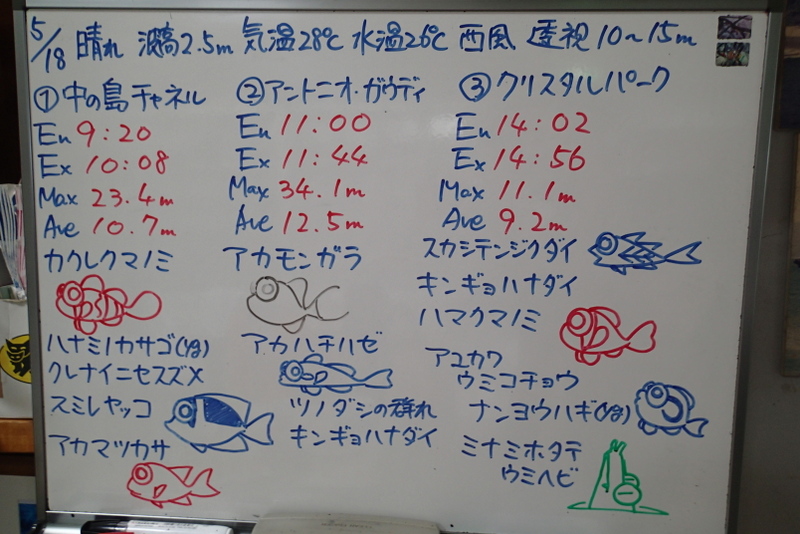 5/18 晴れ 波高2.5m 気温28℃ 水温26℃ 西風 透視10〜15m
①中の島チャネル
En 9:20
Ex 10:08
Max 23.4m
Ave 10.7m
カクレクマノミ
ハナミノカサゴ(yg)
クレナイニセスズメ
スミレヤッコ
アカマツカサ
②アントニオ・ガウディ
En 11:00
Ex 11:44
Max 34.1m
Ave 12.5m
アカモンガラ
アカハチハゼ
ツノダシの群れ
キンギョハナダイ
③クリスタルパーク
En 14:02
Ex 14:56
Max 11.1m
Ave 9.2m
スカシテンジクダイ
キンギョハナダイ
ハマクマノミ
アユカワ
ウミコチョウ
ナンヨウハギ(yg)
ミナミホタテ
ウミヘビ